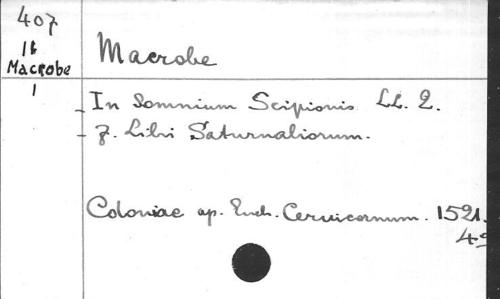 407
Macrobe
1
Macrobe
- In Somnium Scipionis. LL. 2.
- 7. Libri Saturnaliorum.
Coloniae ap. Euch. Cervicornum. 1521.
4º